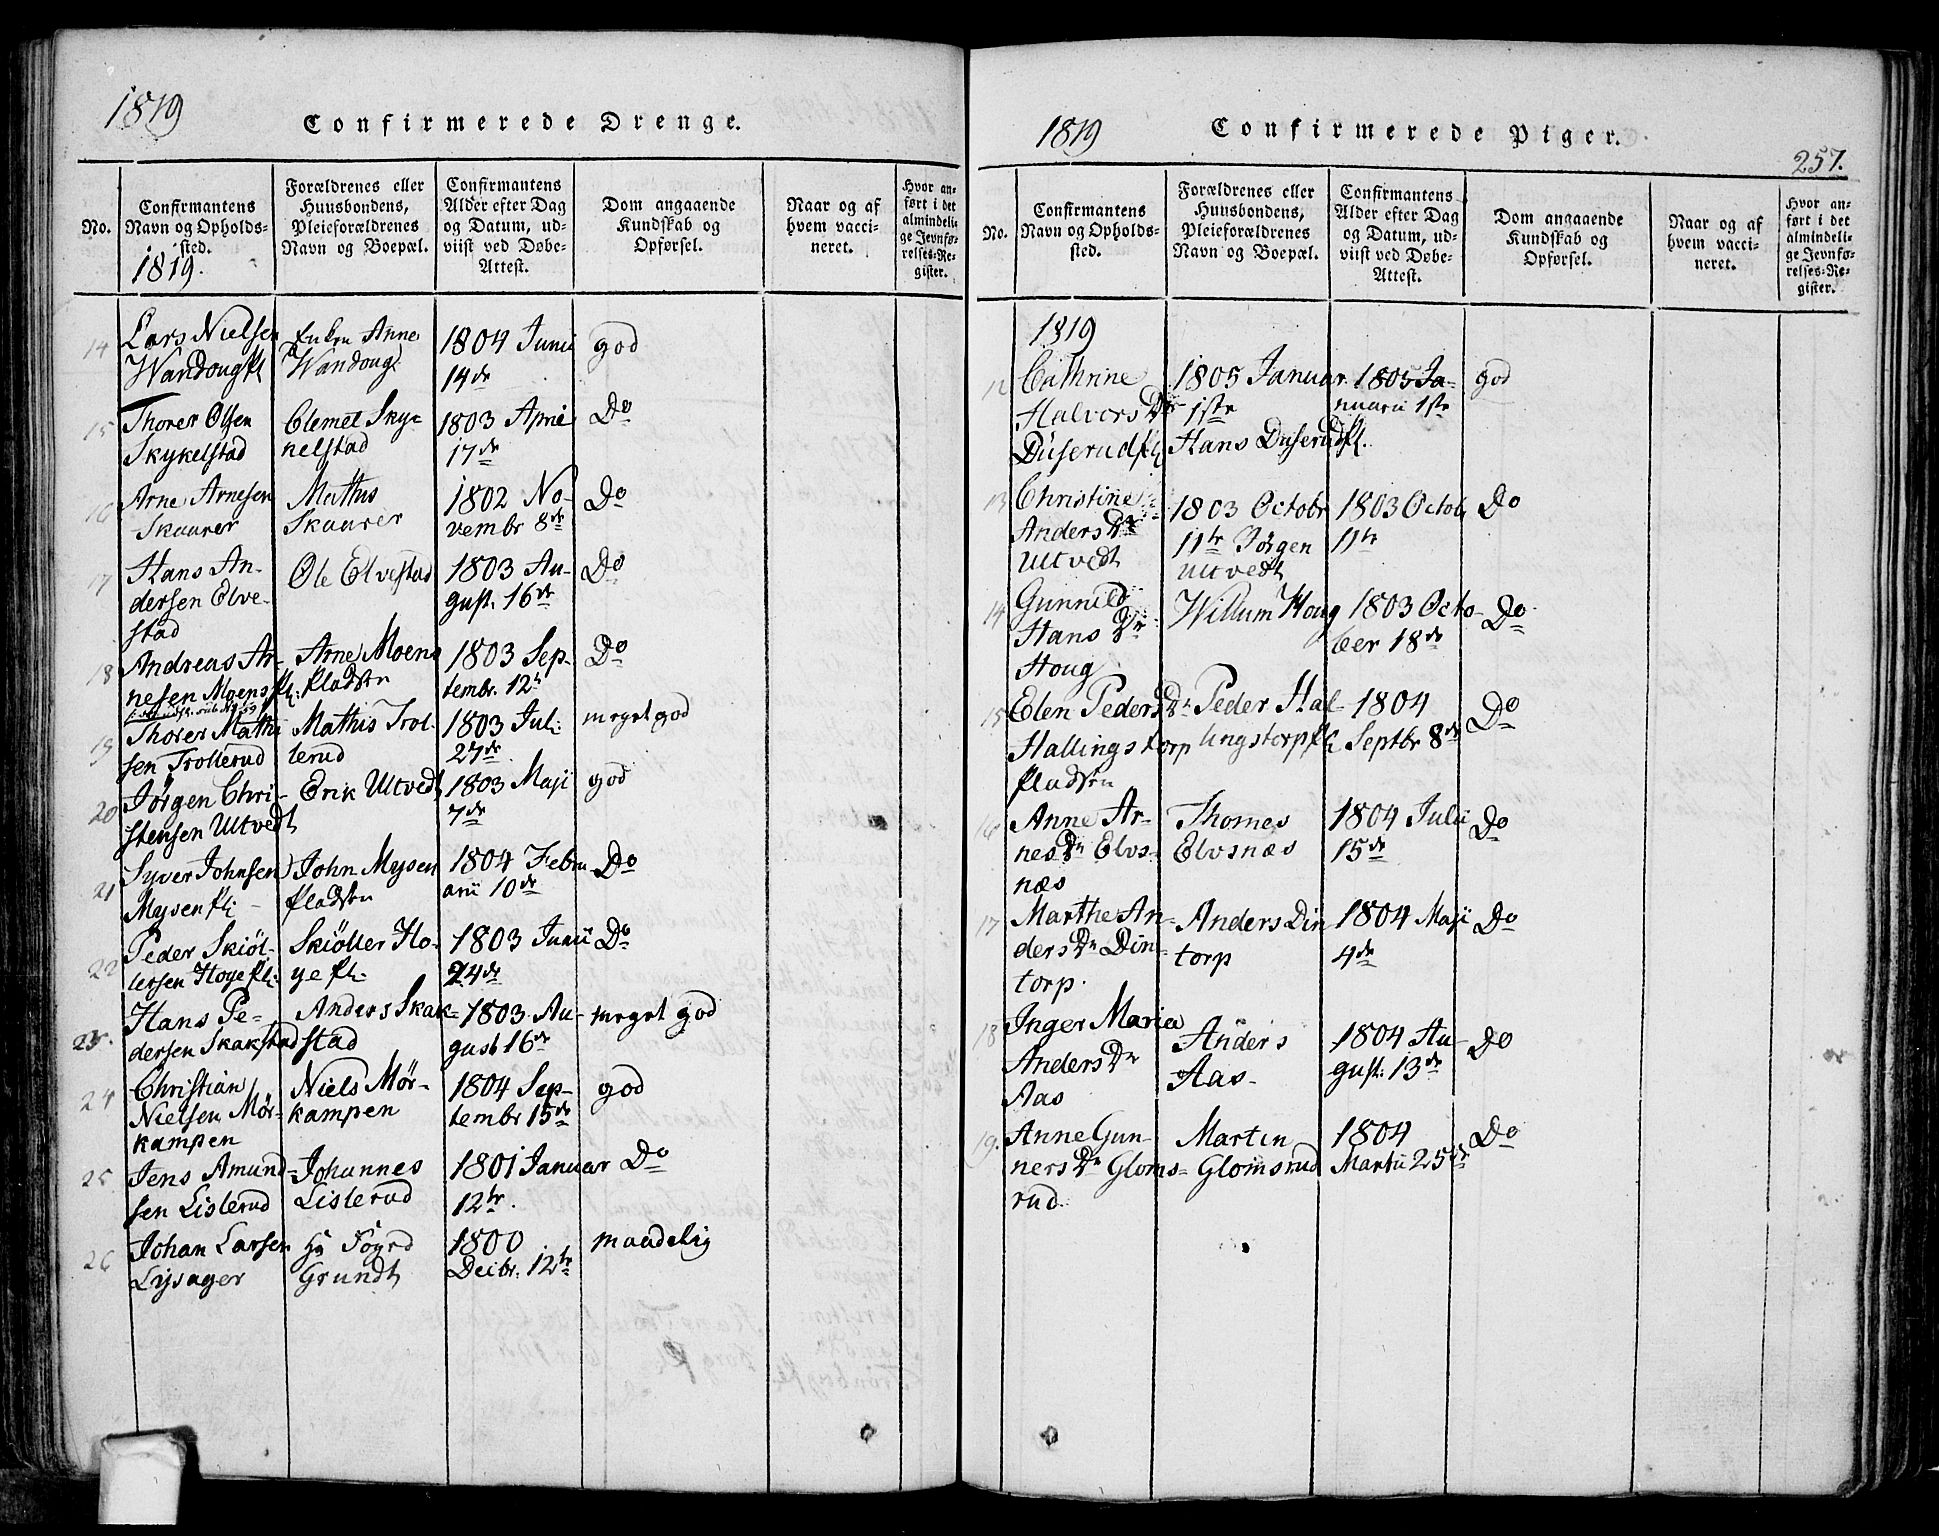 1819
Confirmerede Drenge.
No.
Confirmantens
Navn og Opholds-
sted.
1819.
Forældrenes eller
Huusbondens,
Pleieforældrenes
Navn og Boepæl.
Confirmantens
Alder efter Dag
og Datum, ud-
viist ved Døbe-
Attest.
Dom angaaende
Kundskab og
Opførsel.
Naar og af
hvem vacci-
neret.
Hvor an-
ført i det
almindeli-
ge Jevnfø-
relses-Re-
gister.
14
Lars Nielsen
Wandougpl
Enken Anne
Wandoug
1804 Junii
14de
god
15
Thorer Olsen
Skykelstad
Clemet Sky-
kelstad
1803 April
17de
Do
16
Arne Arnesen
Skaurer
Mathis
Skaurer
1802 No-
vembr 8de
Do
17
Hans An-
dersen Elve-
stad
Ole Elvestad
1803 Au-
gust. 16de
Do
18
Andreas Ar-
nesen Moens pl:
Arne Moens
pladsen
1803 Sep-
tembr. 12te
Do
19
Thorer Mathi
sen Trollerud
Mathis Trol-
lerud
1803 Juli
27de
meget god
20
Jørgen Chri-
stensen Ultvedt
Erik Ultvedt
1803 Maji
7de
god
21
Syver Johnsen
Mysen pl:
John Mysen
pladsen
1804 Febru-
arii 10de
Do
22
Peder Skiøl-
lersen Hoye pl:
Skiøller Ho-
ye pl.
1803 Junii
24de
Do
23.
Hans Pe-
dersen Skakstad
Anders Skak-
stad
1803 Au-
gust 16de
meget god
24
Christian
Nielsen Mør-
kampen
Niels Mør-
kampen
1804 Sep-
tembr 15de
god
25
Jens Amund-
sen Lislerud
Johannes
Lislerud
1801 Januar
12te.
Do
26
Johan Larsen
Lysager
Hr Fogrd
Grundt
1800
Decbr. 12te
maadelig
1819
Confirmerede Piger.
257.
No.
Confirmantens
Navn og Opholds-
sted.
Forældrenes eller
Huusbondens,
Pleieforældrenes
Navn og Boepæl.
Confirmantens
Alder efter Dag
og Datum, ud-
viist ved Døbe-
Attest.
Dom angaaende
Kundskab og
Opførsel.
Naar og af
hvem vacci-
neret.
Hvor an-
ført i det
almindeli-
ge Jevnfø-
relses-Re-
gister.
1819
12
Cathrine
Halvors Dr
Duserudpl
1805 Januar
1ste
Hans Duserudpl.
1805 Ja-
nuarii 1ste
god
13
Christine
Anders Dr
Ultvedt
1803 Octobr
11te Jörgen
Ultvedt
1803 Octob
11te
Do
14
Gunnild
Hans Dr
Houg
Willum Houg
1803 Octo-
ber 18de
Do
15
Elen Peders Dr
Hallingstorp
pladsen
Peder Hal-
lingstorp pl
1804
Septbr 8de
Do
16
Anne Ar-
nes Dr Elvs-
næs
Thomes
Elvsnæs
1804 Julii
15de
Do
17
Marthe An-
ders Dr Din-
torp.
Anders Din
torp
1804 Maji
4de
Do
18
Inger Maria
Anders Dr
Aas
Anders
Aas
1804 Au-
gust: 13de
Do
19.
Anne Gun-
ners Dr Gloms-
rud.
Martin
Glomsrud
1804
Martii 25de
Do